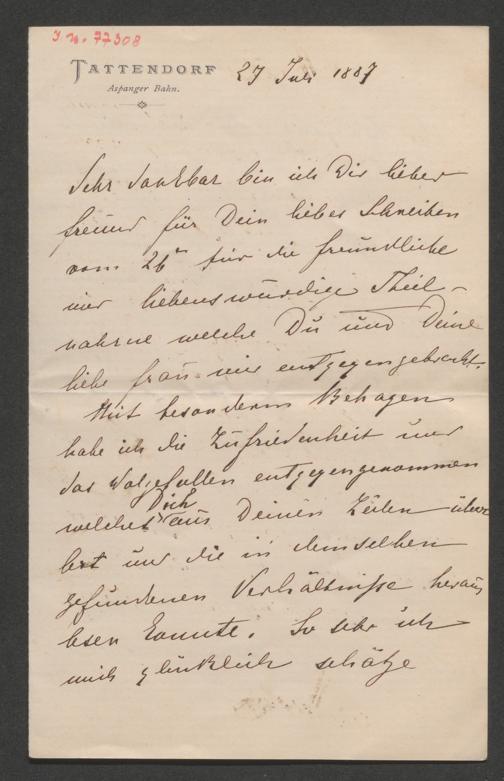 J. N. 77308
TATTENDORF
Aspanger Bahn.
27 Juli 1887
Sehr dankbar bin ich Dir lieber
Freund für Dein liebes Schreiben
vom 26n für die freundliche
und liebenswürdige Theil-
nahme welche Du und Deine
liebe Frau mir entgegengebracht.
Mit besonderm Behagen
habe ich die Zufriedenheit und
das Wolgefallen entgegengenommen
welches ich aus Deinen Zeilen über
und die in demselben
gefundenen Verhältnisse heraus
lesen konnte. So sehr ich
mich glücklich schätze